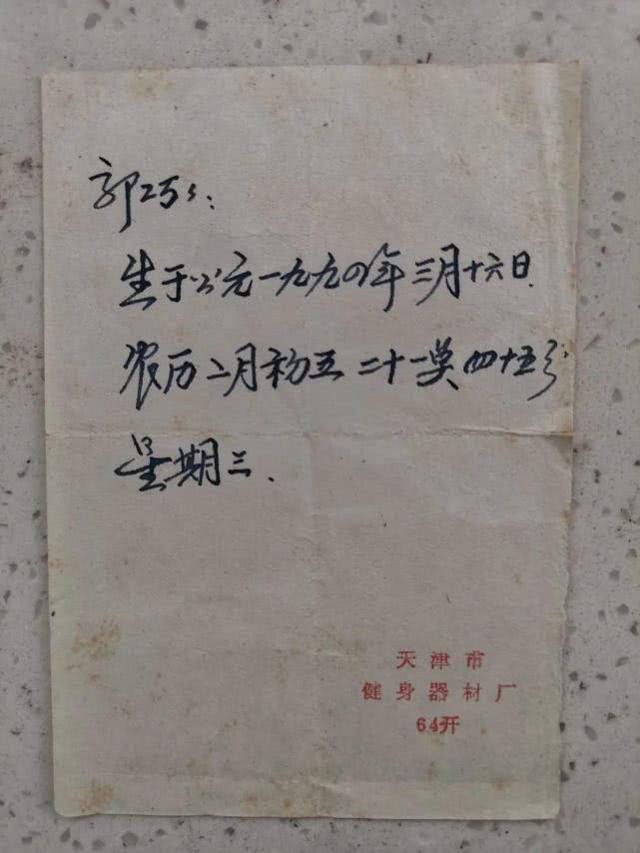 郭巧々：
生于公元一九九四年三月十六日.
农历二月初五 二十一奌四十五分
星期三.
天津市
健身器材厂
64开